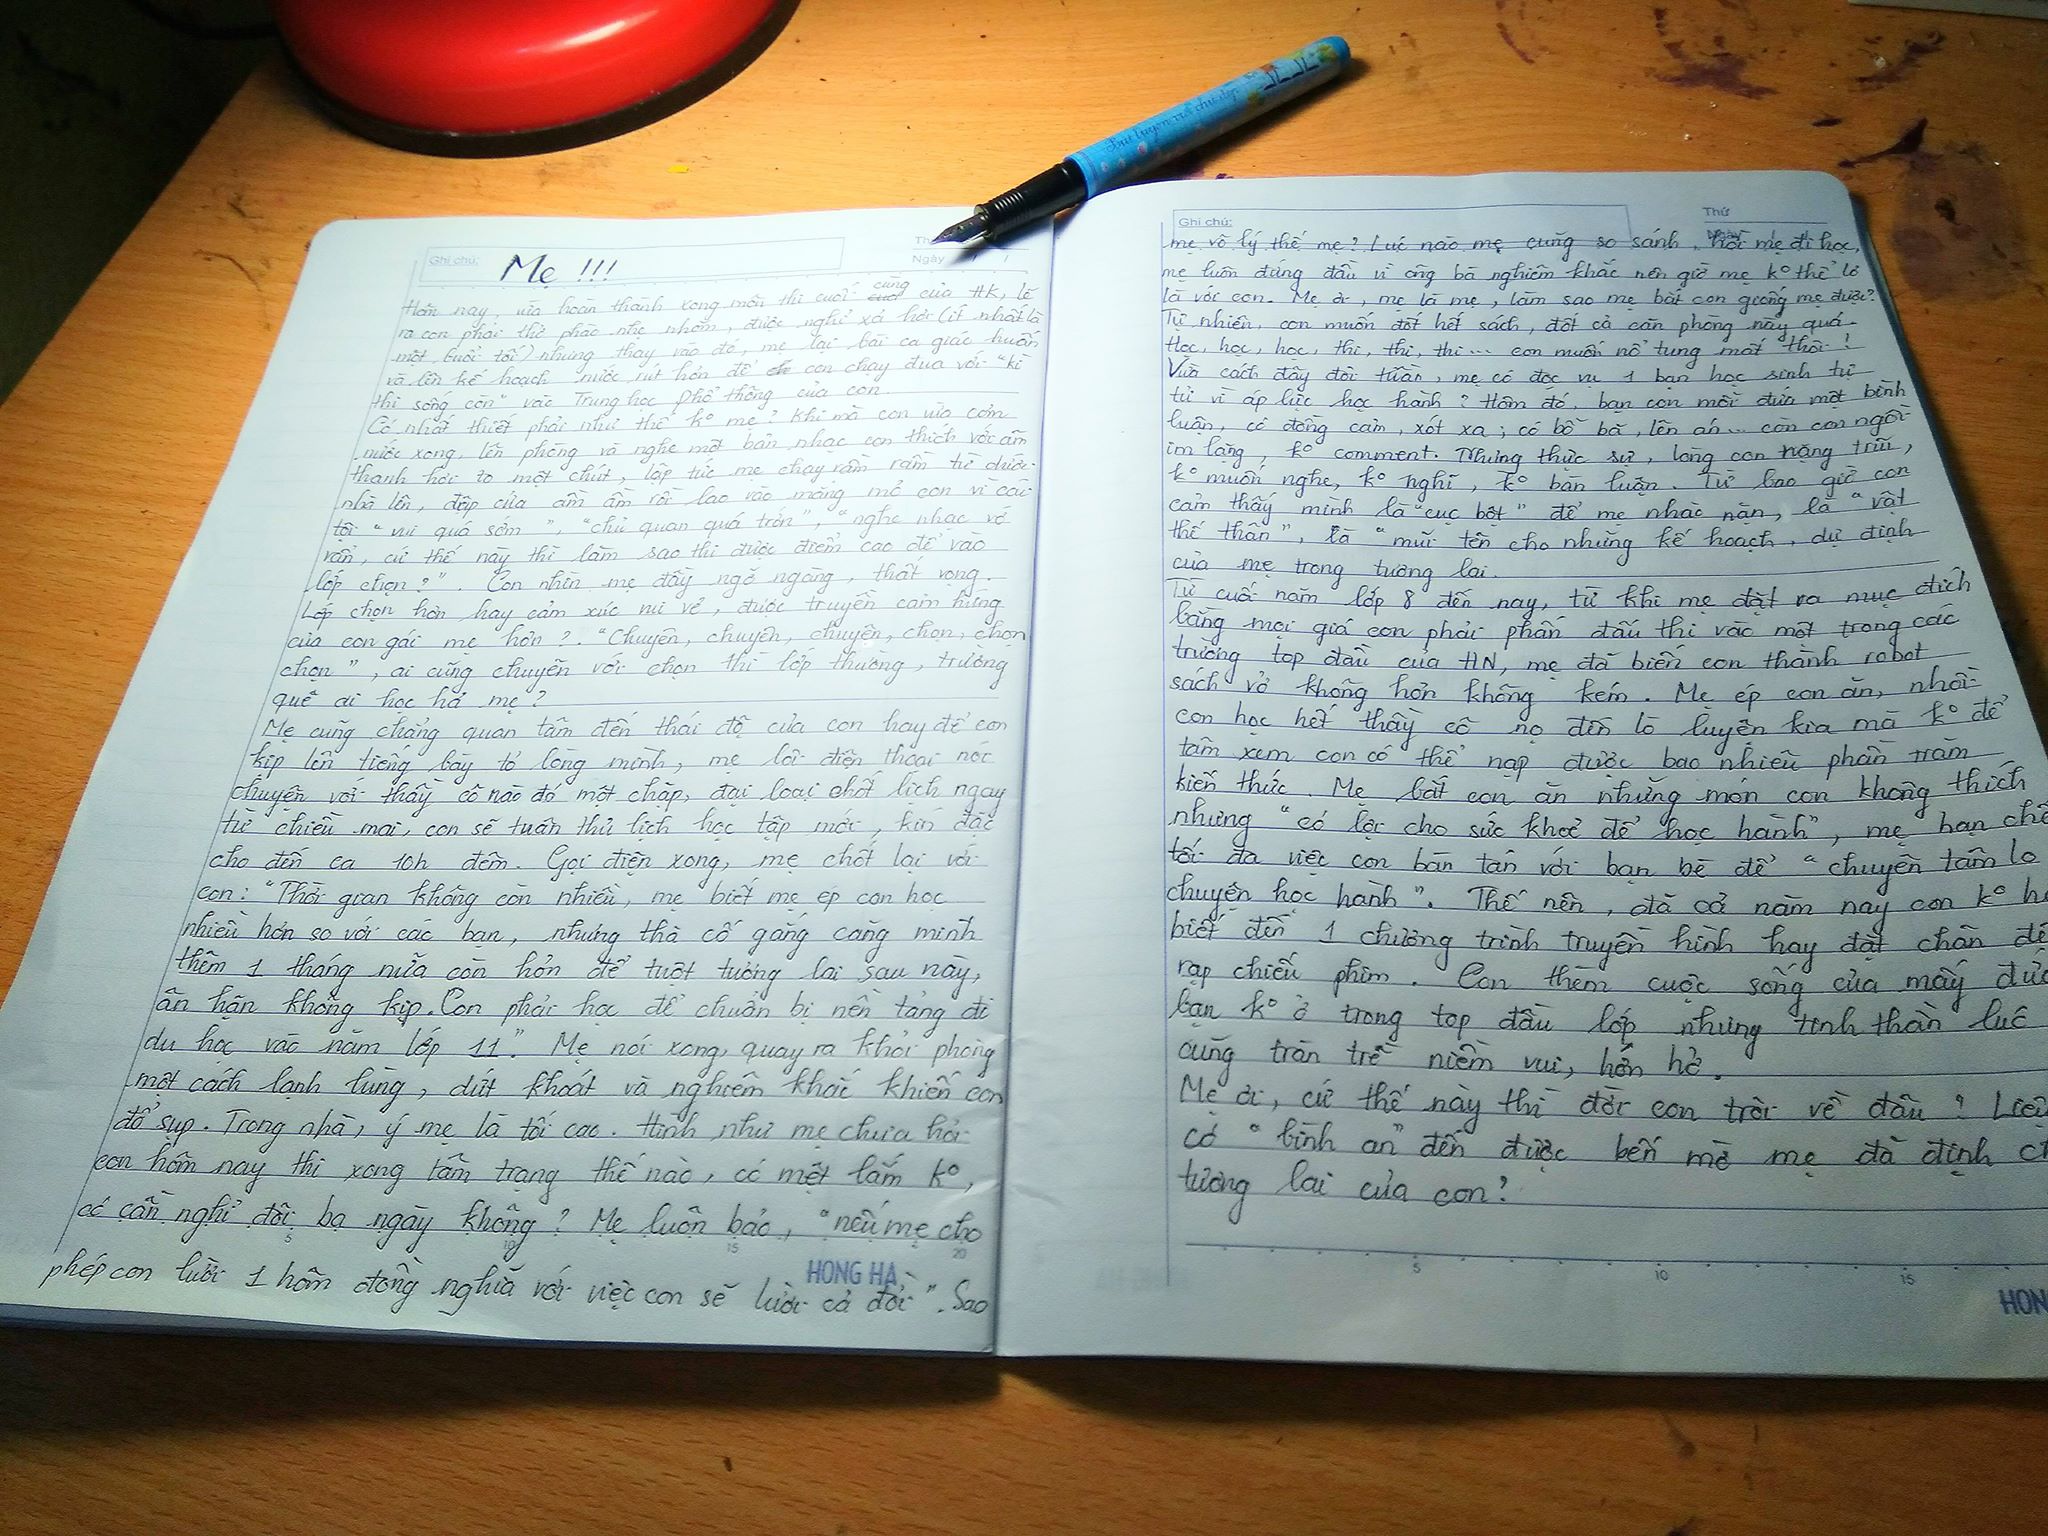 Bút luyện viết chữ đẹp
Ghi chú:
Mẹ !!!
Ngày / /
Hôm nay, vừa hoàn thành xong môn thi cuối cùng của HK, lẽ
ra con phải thở phào nhẹ nhõm, được nghỉ xả hơi (ít nhất là
một buổi tối) nhưng thay vào đó, mẹ lại bài ca giáo huấn
và lên kế hoạch nước rút hơn để con chạy đua với "kì
thi sống còn" vào Trung học phổ thông của con.
Có nhất thiết phải như thế k° mẹ? Khi mà con vừa cơm
nước xong, lên phòng và nghe một bản nhạc con thích với âm
thanh hơi to một chút, lập tức mẹ chạy rầm rầm từ dưới
nhà lên, đập cửa ầm ầm rồi lao vào mắng mỏ con vì cái
tội "vui quá sớm", "chủ quan quá trớn", "nghe nhạc vớ
vẩn, cứ thế này thì làm sao thi được điểm cao để vào
lớp chọn?". Con nhìn mẹ đầy ngỡ ngàng, thất vọng.
Lớp chọn hơn hay cảm xúc vui vẻ, được truyền cảm hứng
của con gái mẹ hơn?. "Chuyên, chuyên, chuyên, chọn, chọn
chọn", ai cũng chuyên với chọn thì lớp thường, trường
quê ai học hả mẹ?
Mẹ cũng chẳng quan tâm đến thái độ của con hay để con
kịp lên tiếng bày tỏ lòng mình, mẹ lôi điện thoại nói
chuyện với thầy cô nào đó một chặp, đại loại chốt lịch ngay
từ chiều mai, con sẽ tuân thủ lịch học tập mới, kín đặc
cho đến ca 10h đêm. Gọi điện xong, mẹ chốt lại với
con: "Thời gian không còn nhiều, mẹ biết mẹ ép con học
nhiều hơn so với các bạn, nhưng thà cố gắng căng mình
thêm 1 tháng nữa còn hơn để tuột tương lai sau này,
ân hận không kịp. Con phải học để chuẩn bị nền tảng đi
du học vào năm lớp 11". Mẹ nói xong, quay ra khỏi phòng
một cách lạnh lùng, dứt khoát và nghiêm khắc khiến con
đổ sụp. Trong nhà, ý mẹ là tối cao. Hình như mẹ chưa hỏi
con hôm nay thi xong tâm trạng thế nào, có mệt lắm k°,
có cần nghỉ đôi ba ngày không? Mẹ luôn bảo, "nếu mẹ cho
phép con lười 1 hôm đồng nghĩa với việc con sẽ lười cả đời". Sao
5 10 15 20
HONG HA
Ghi chú:
Thứ
Ngày
mẹ vô lý thế mẹ? Lúc nào mẹ cũng so sánh, hồi mẹ đi học,
mẹ luôn đứng đầu vì ông bà nghiêm khắc nên giờ mẹ k° thể lơ
là với con. Mẹ ơi, mẹ là mẹ, làm sao mẹ bắt con giống mẹ được?
Tự nhiên, con muốn đốt hết sách, đốt cả căn phòng này quá.
Học, học, học, thi, thi, thi... con muốn nổ tung mất thôi!
Vừa cách đây đôi tuần, mẹ có đọc vụ 1 bạn học sinh tự
tử vì áp lực học hành? Hôm đó, bạn con mỗi đứa một bình
luận, có đồng cảm, xót xa; có bỗ bã, lên án... còn con ngồi
im lặng, k° comment. Nhưng thực sự, lòng con nặng trĩu,
k° muốn nghe, k° nghĩ, k° bàn luận. Từ bao giờ con
cảm thấy mình là "cục bột" để mẹ nhào nặn, là "vật
thế thân", là "mũi tên cho những kế hoạch, dự định
của mẹ trong tương lai.
Từ cuối năm lớp 8 đến nay, từ khi mẹ đặt ra mục đích
bằng mọi giá con phải phấn đấu thi vào một trong các
trường top đầu của HN, mẹ đã biến con thành robot
sách vở không hơn không kém. Mẹ ép con ăn, nhồi
con học hết thầy cô nọ đến lò luyện kia mà k° để
tâm xem con có thể nạp được bao nhiêu phần trăm
kiến thức. Mẹ bắt con ăn những món con không thích
nhưng "có lợi cho sức khoẻ để học hành", mẹ hạn chế
tối đa việc con bàn tán với bạn bè để "chuyên tâm lo
chuyện học hành". Thế nên, đã cả năm nay con k° h
biết đến 1 chương trình truyền hình hay đặt chân đế
rạp chiếu phim. Con thèm cuộc sống của mấy đứa
bạn k° ở trong top đầu lớp nhưng tinh thần lúc
cũng tràn trề niềm vui, hớn hở.
Mẹ ơi, cứ thế này thì đời con trôi về đâu? Liệu
có "bình an" đến được bến mơ mẹ đã định ch
tương lai của con?
5 10 15
HON